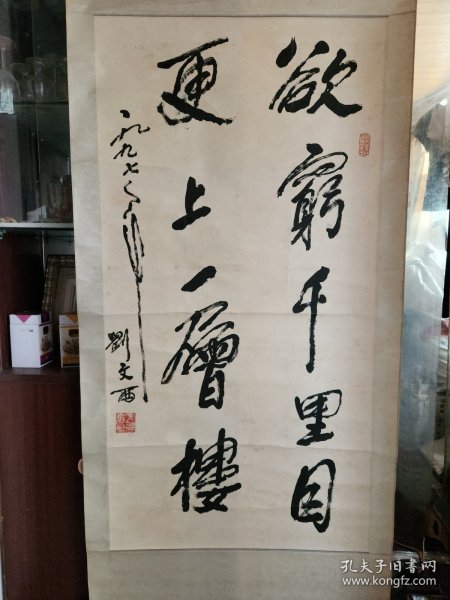 欲窮千里目
更上一層樓
一九九七年
劉文西
孔夫子旧书网
www.kongfz.com